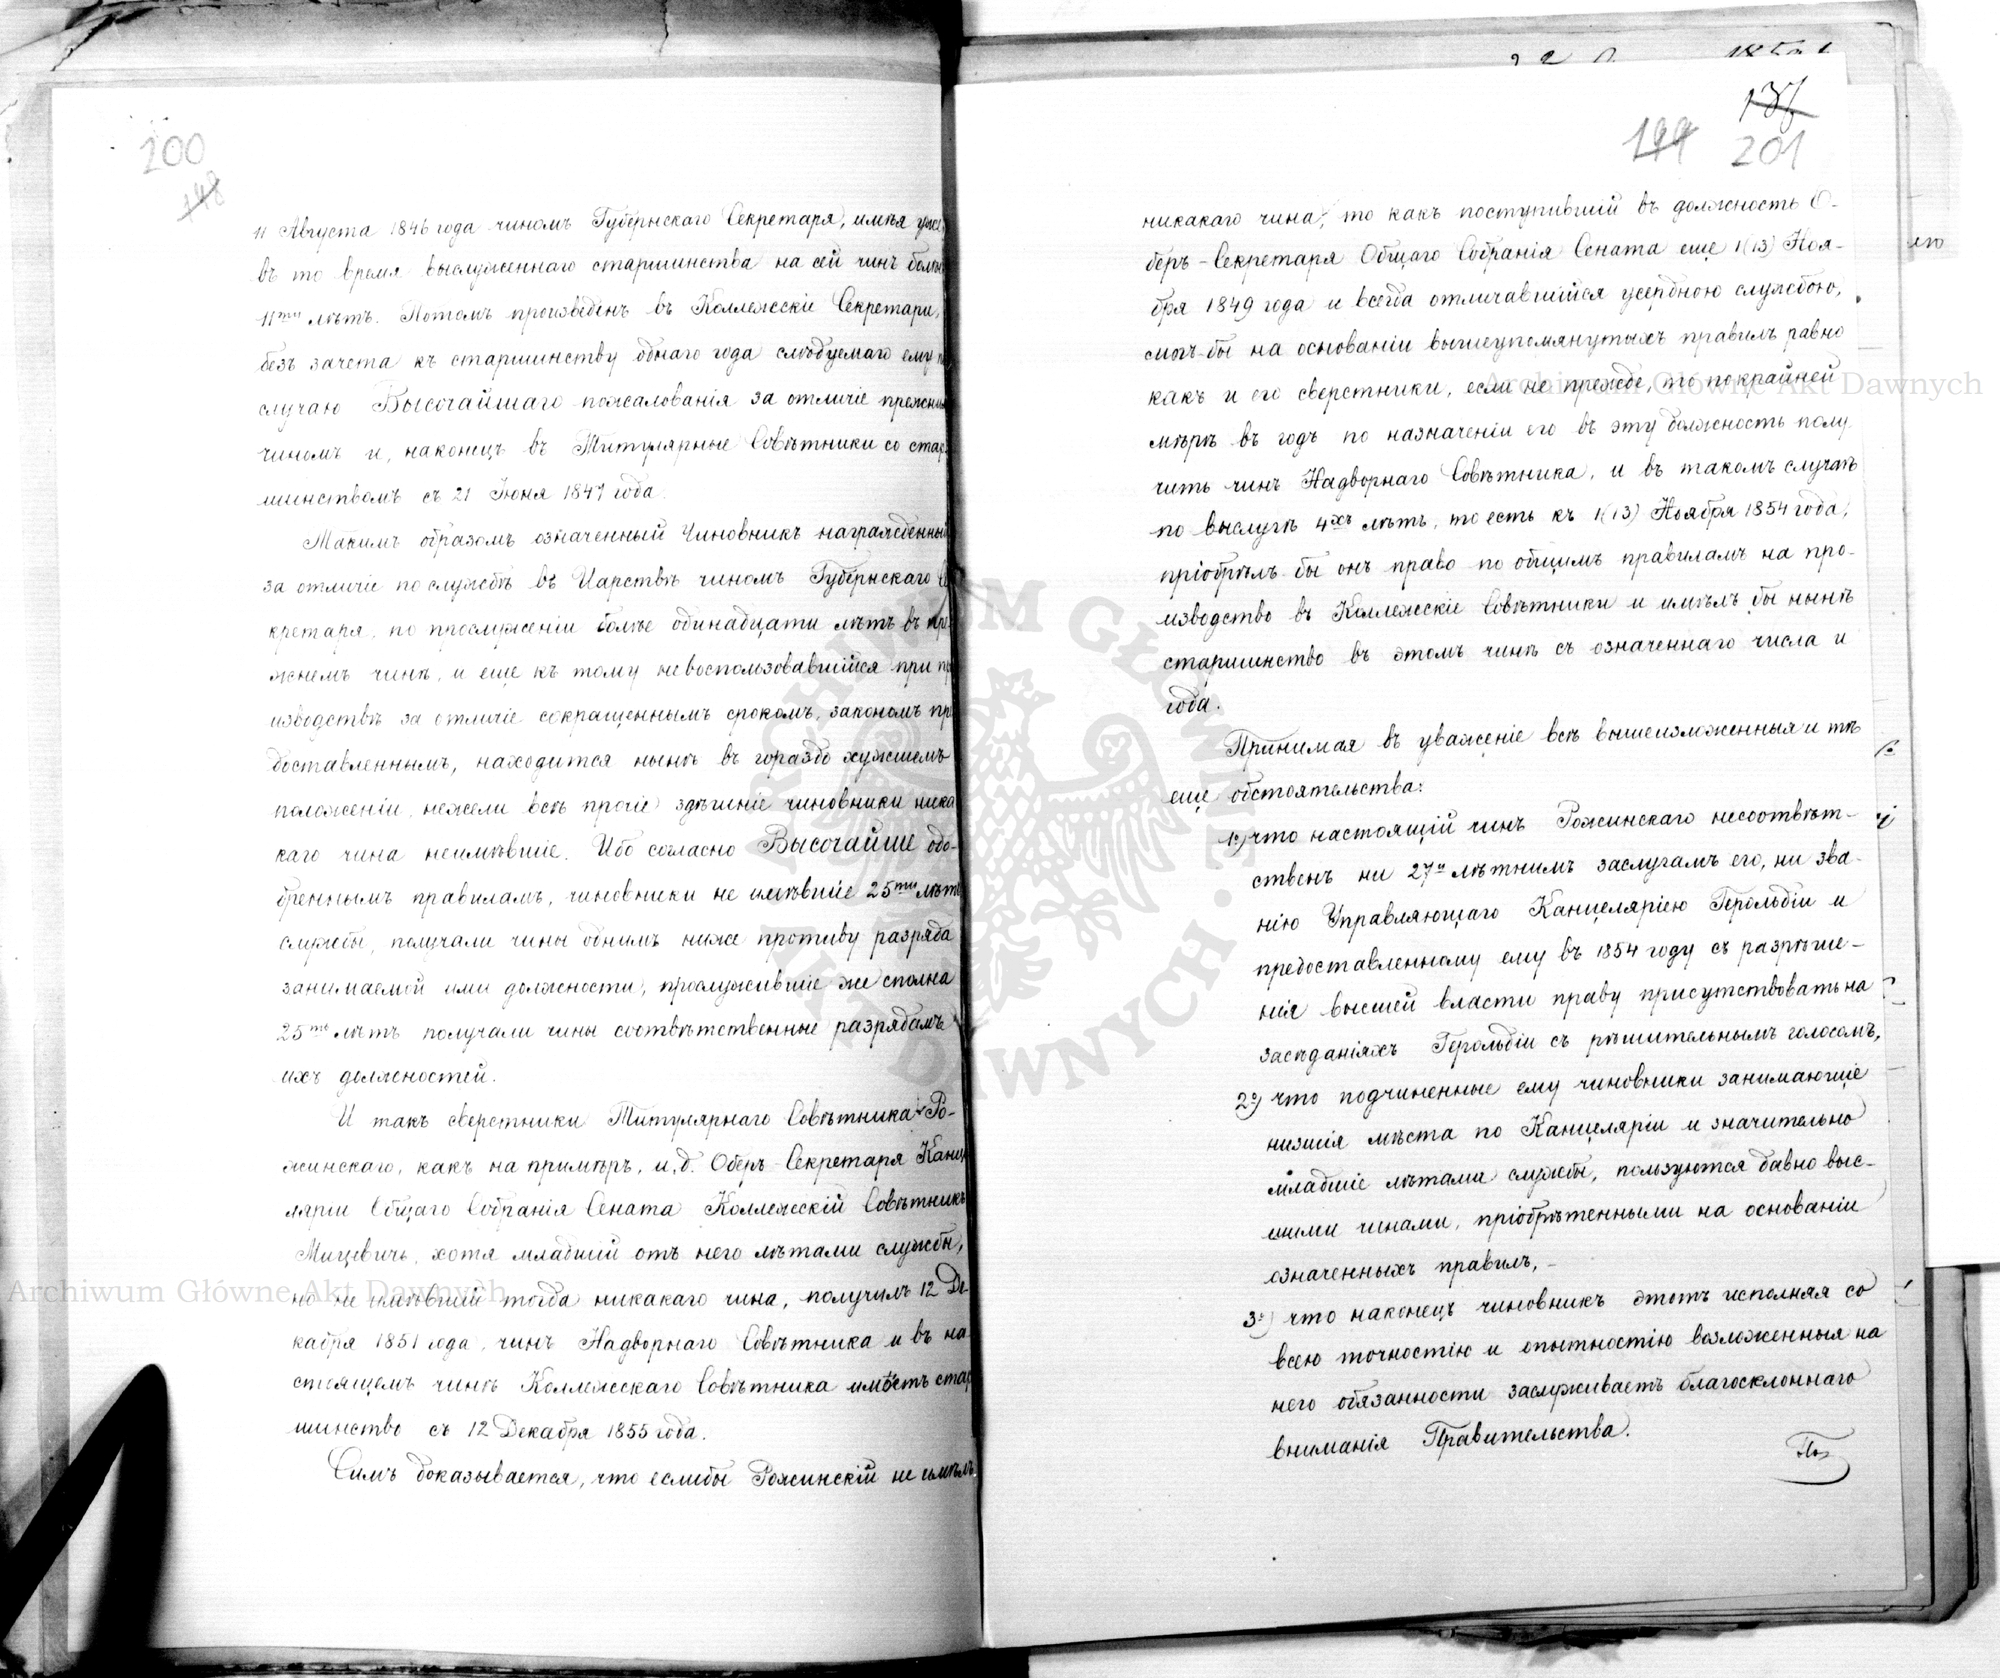 200
148
11 Августа 1846 года чиномъ Губернскаго Секретаря, имѣя уже
въ то время выслуженнаго старшинства на сей чинъ болѣе
11ти лѣтъ. Потомъ произведенъ въ Коллежскіе Секретари,
безъ зачета къ старшинству однаго года слѣдуемаго ему по
случаю Высочайшаго пожалованія за отличіе прежнимъ
чиномъ и, наконецъ въ Титулярные Совѣтники со стар-
шинствомъ съ 21 Іюня 1847 года.
Такимъ образомъ означенный Чиновникъ награжденный
за отличіе по службѣ въ Царствѣ чиномъ Губернскаго Се-
кретаря, по прослуженіи болѣе одинадцати лѣтъ въ пре-
жнемъ чинѣ, и еще къ тому невоспользовавшійся при про-
изводствѣ за отличіе сокращеннымъ срокомъ, закономъ пре-
доставленнымъ, находится нынѣ въ гораздо хужшемъ
положеніи, нежели всѣ прочіе здѣшніе чиновники ника-
каго чина неимѣвшіе. Ибо согласно Высочайше одо-
бреннымъ правиламъ, чиновники не имѣвшіе 25ти лѣтъ
службы, получали чины однимъ ниже противу разряда
занимаемой ими должности, прослужившіе же сполна
25ть лѣтъ получали чины соотвѣтственные разрядамъ
ихъ должностей.
И такъ сверстники Титулярнаго Совѣтника Ро-
жинскаго, какъ на примѣръ, и. д. Оберъ-Секретаря Канце-
ляріи Общаго Собранія Сената Коллежскій Совѣтникъ
Мицевичъ, хотя младшій отъ него лѣтами службы,
но не имѣвшій тогда никакаго чина, получилъ 12 Де-
кабря 1851 года, чинъ Надворнаго Совѣтника и въ на-
стоящемъ чинѣ Коллежскаго Совѣтника имѣетъ стар-
шинство съ 12 Декабря 1855 года.
Симъ доказывается, что еслибы Рожинскій не имѣлъ
201
никакаго чина, то какъ поступившій въ должность О-
беръ-Секретаря Общаго Собранія Сената еще 1(13) Ноя-
бря 1849 года и всегда отличавшійся усердною службою,
смогъ-бы на основаніи вышеупомянутыхъ правилъ равно
какъ и его сверстники, если не прежде, то покрайней
мѣрѣ въ годъ по назначеніи его въ эту должность полу-
чить чинъ Надворнаго Совѣтника, и въ такомъ случаѣ
по выслугѣ 4хъ лѣтъ, то есть къ 1(13) Ноября 1854 года,
пріобрѣлъ бы онъ право по общимъ правиламъ на про-
изводство въ Коллежскіе Совѣтники и имѣлъ бы нынѣ
старшинство въ этомъ чинѣ съ означеннаго числа и
года.
Принимая въ уваженіе всѣ вышеизложенныя и тѣ
еще обстоятельства:
1е) что настоящій чинъ Рожинскаго несоотвѣт-
ственъ ни 27и лѣтнимъ заслугамъ его, ни зва-
нію Управляющаго Канцеляріею Герольдіи и
предоставленному ему въ 1854 году съ разрѣше-
нія высшей власти праву присутствовать на
засѣданіяхъ Герольдіи съ рѣшительнымъ голосомъ,
2е) что подчиненные ему чиновники занимающіе
низшія мѣста по Канцеляріи и значительно
младшіе лѣтами службы, пользуются давно выс-
шими чинами, пріобрѣтенными на основаніи
означенныхъ правилъ,-
3е) что наконецъ чиновникъ этотъ исполняя со
всею точностію и опытностію возложенныя на
него обязанности заслуживаетъ благосклоннаго
вниманія Правительства.
По
Archiwum Główne Akt Dawnych
Archiwum Główne Akt Dawnych
ARCHIWUM GŁÓWNE AKT DAWNYCH